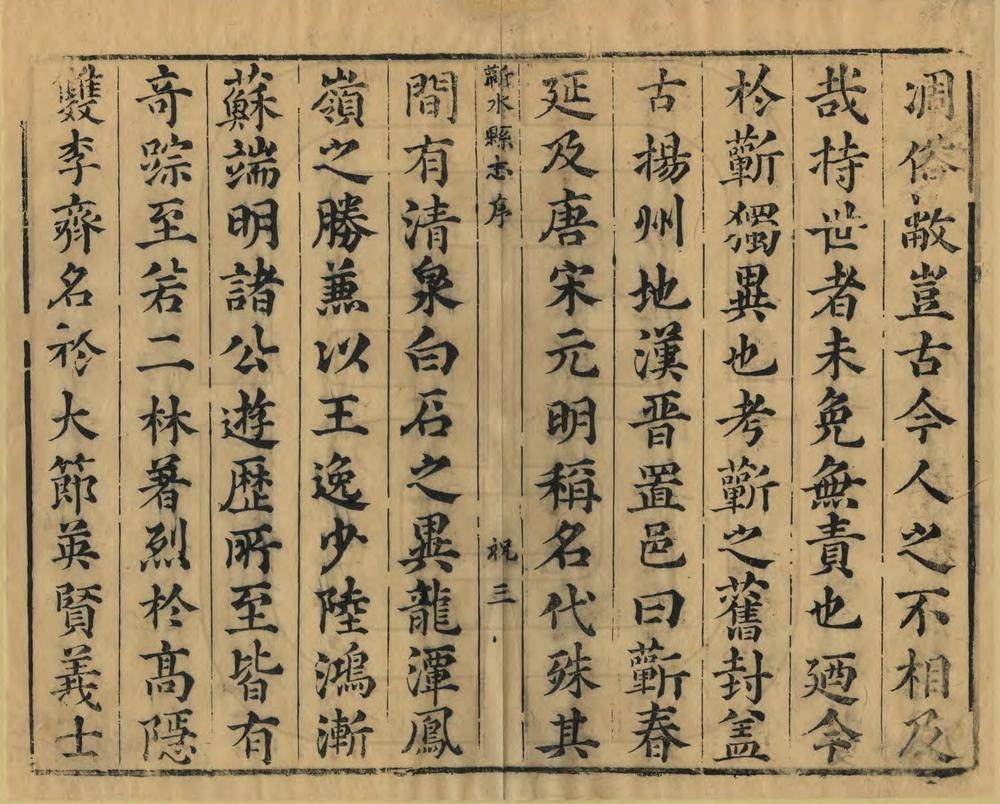 凋俗敝豈古今人之不相及
哉持世者未免無責也廼今
於蘄獨異也考蘄之舊封盖
古揚州地漢晋置邑曰蘄春
延及唐宋元明稱名代殊其
蘄水縣志序 祝三
間有清泉白石之異龍潭鳳
嶺之勝蒹以王逸少陸鴻漸
蘇端明諸公遊歴所至皆有
竒踪至若二林著烈於高隱
雙李齊名於大節英賢義士